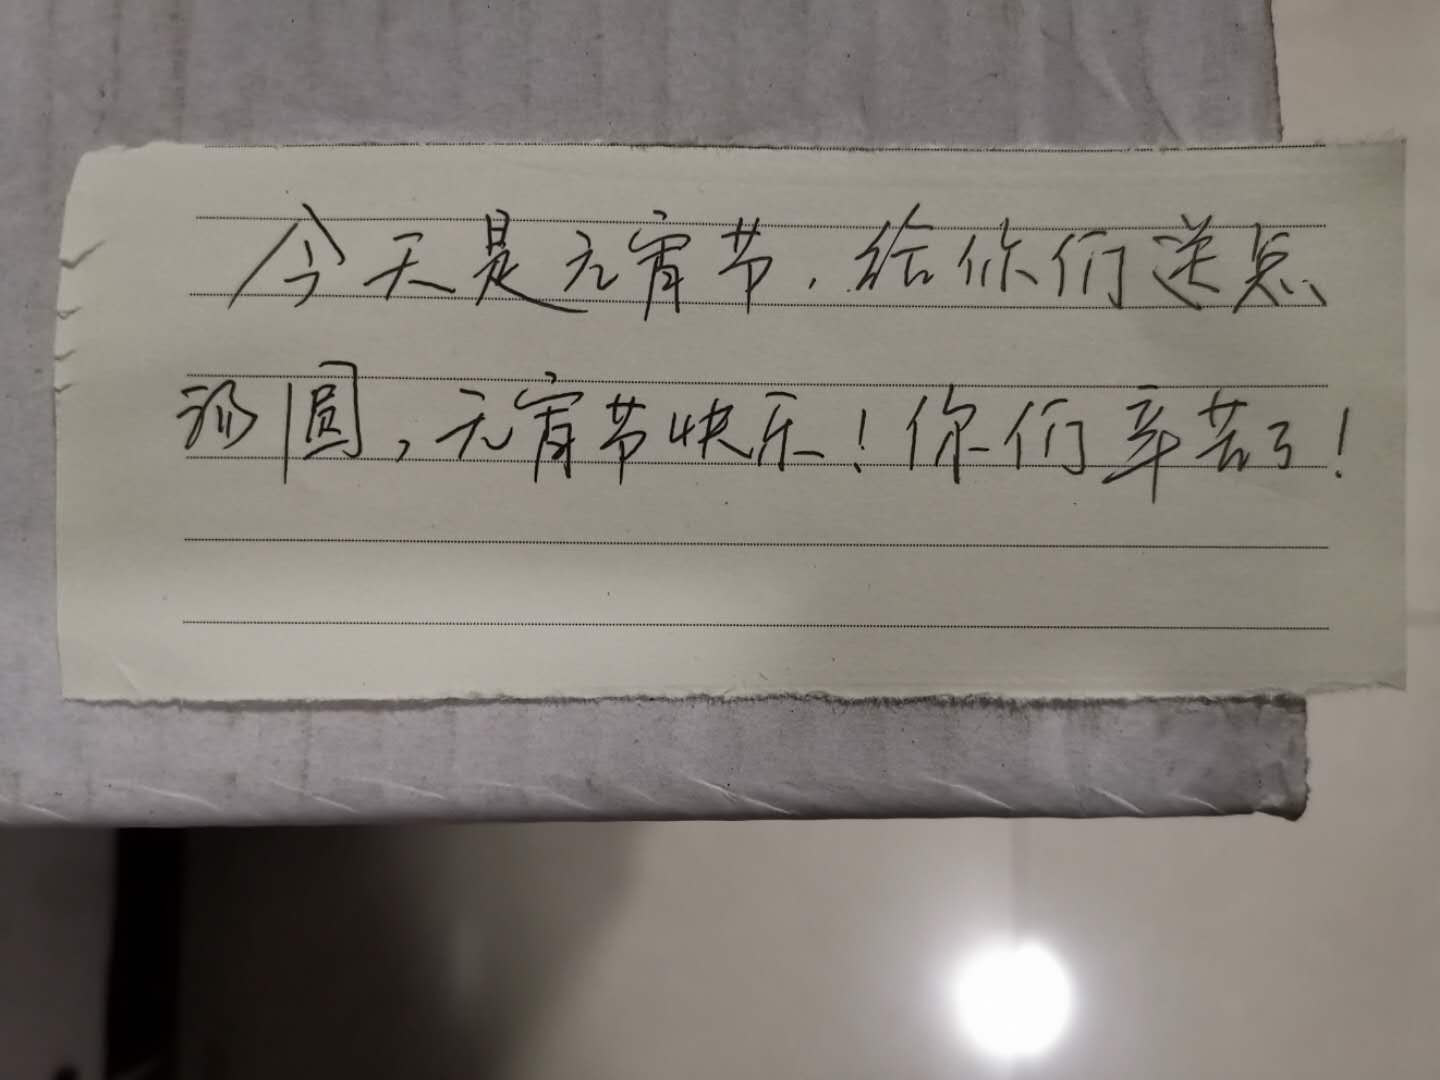 今天是元宵节，给你们送点
汤圆，元宵节快乐！你们辛苦了！